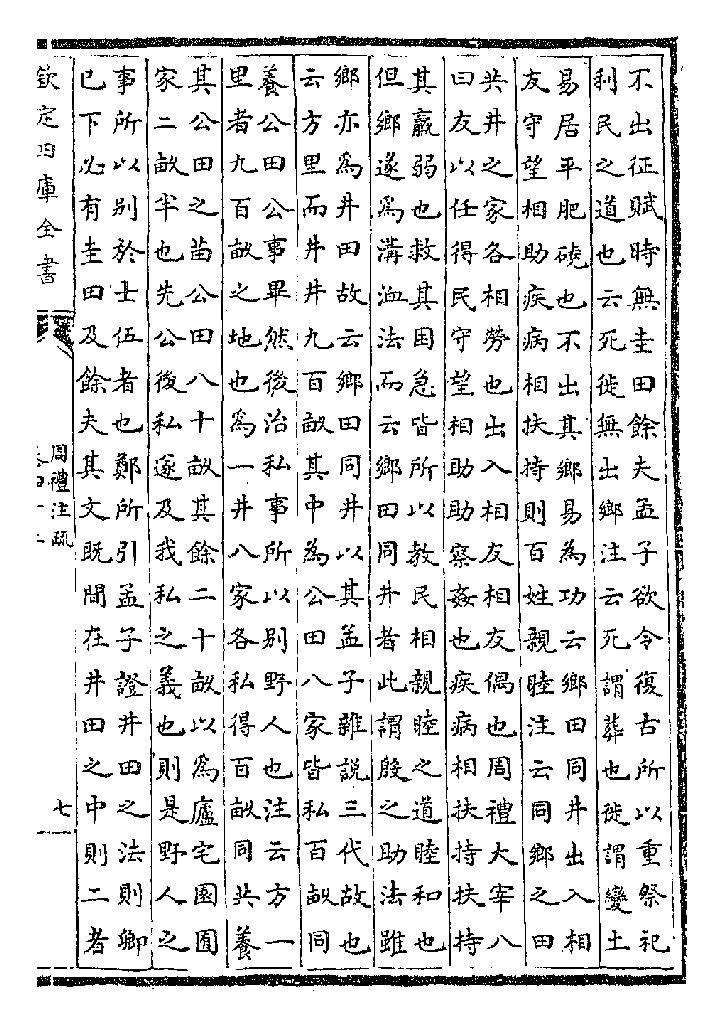 不出征賦時無圭田餘夫孟子欲令復古所以重祭祀
利民之道也云死徙無出鄉注云死謂葬也徙謂變土
易居平肥磽也不出其鄉易為功云鄉田同井出入相
友守望相助疾病相扶持則百姓親睦注云同鄉之田
共井之家各相勞也出入相友相友偶也周禮大宰八
曰友以任得民守望相助助察姦也疾病相扶持扶持
其羸弱也救其困急皆所以教民相親睦之道睦和也
但鄉遂為溝洫法而云鄉田同井者此謂殷之助法雖
鄉亦為井田故云鄉田同井以其孟子雜説三代故也
云方里而井井九百畝其中為公田八家皆私百畝同
養公田公事畢然後治私事所以别野人也注云方一
里者九百畝之地也為一井八家各私得百畝同共養
其公田之苗公田八十畝其餘二十畝以為廬宅園圃
家二畝半也先公後私遂及我私之義也則是野人之
事所以别於士伍者也鄭所引孟子證井田之法則卿
已下必有圭田及餘夫其文既間在井田之中則二者
欽定四庫全書
周禮注疏
七